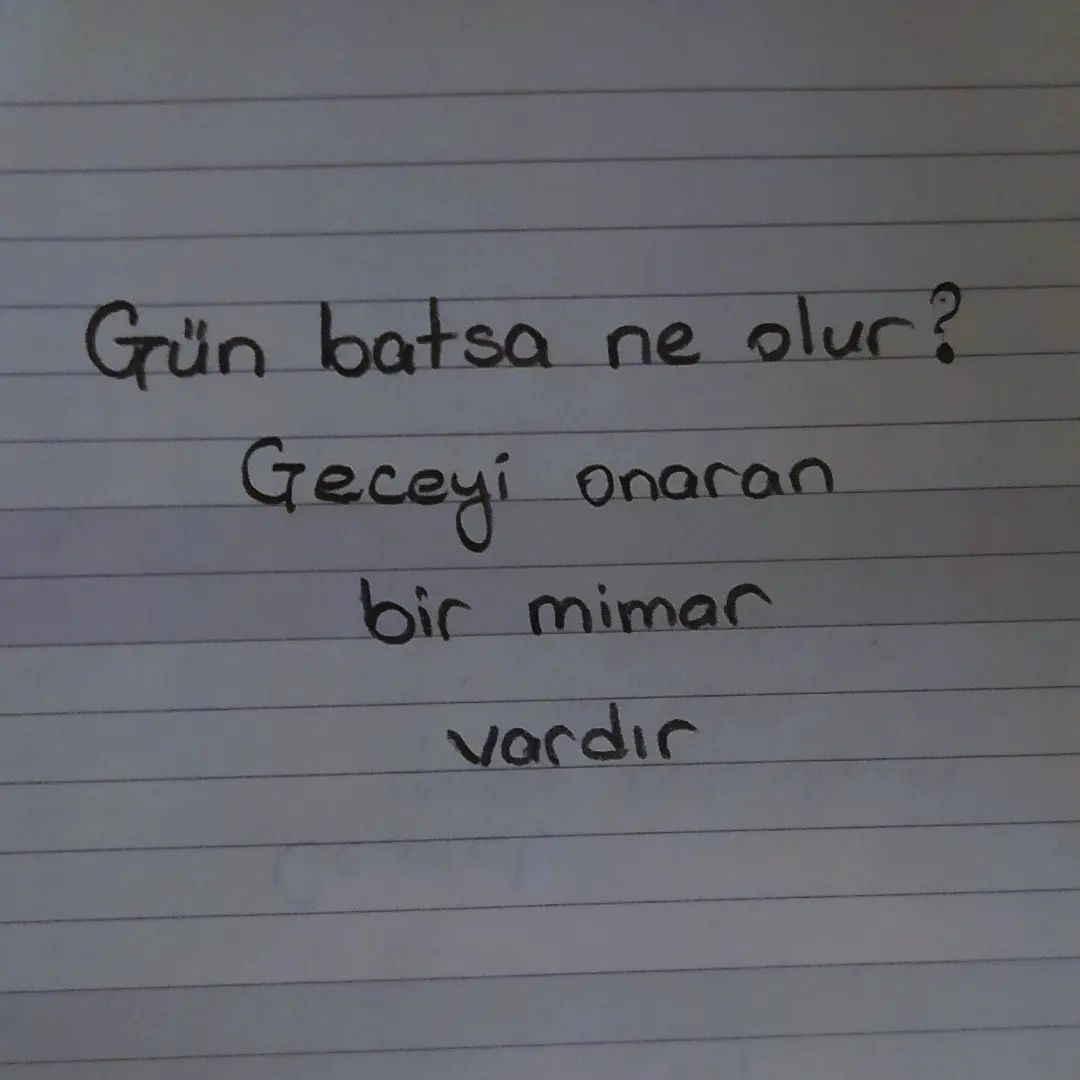 Gün batsa ne olur?
Geceyi onaran
bir mimar
vardır